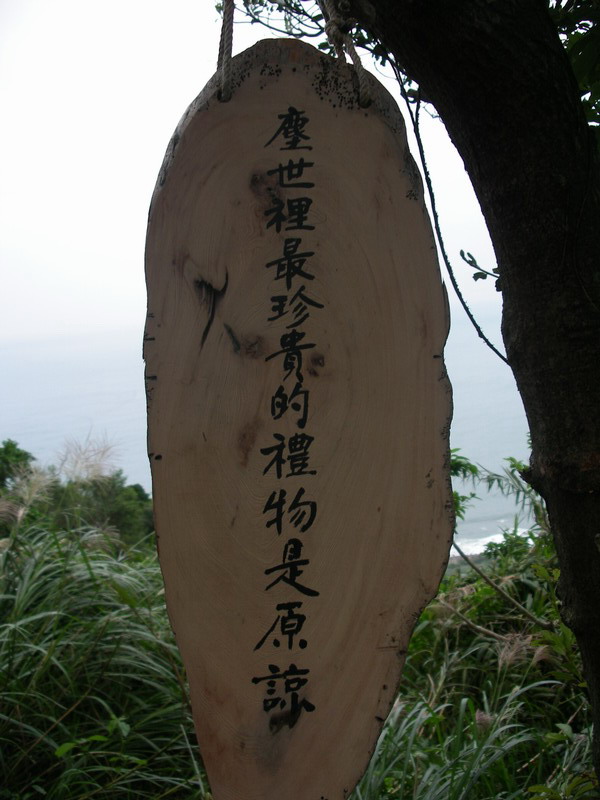 塵世裡最珍貴的禮物是原諒